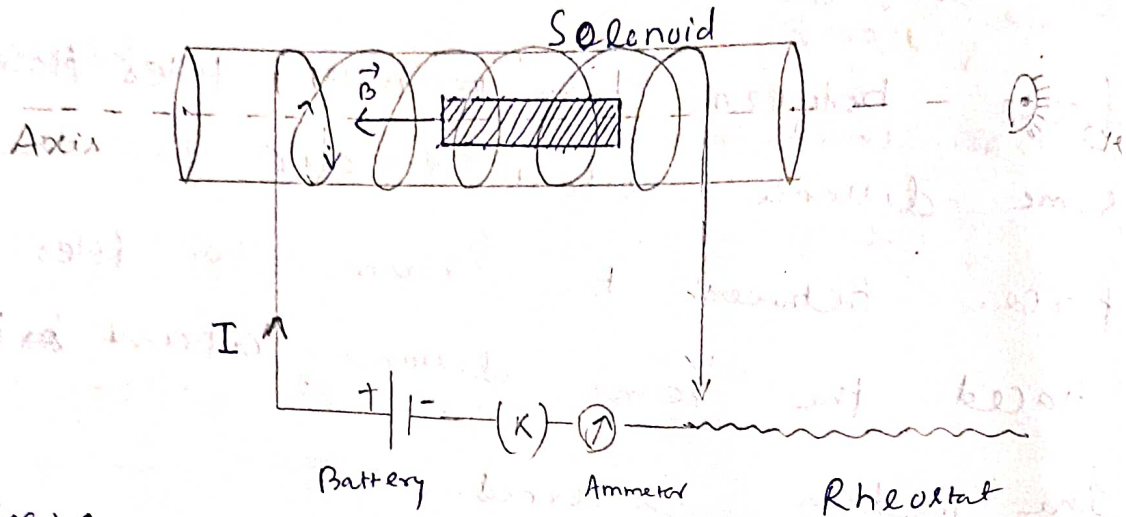 Solenoid
B
Axis
I
+ -
(K)
Battery
Ammeter
Rheostat